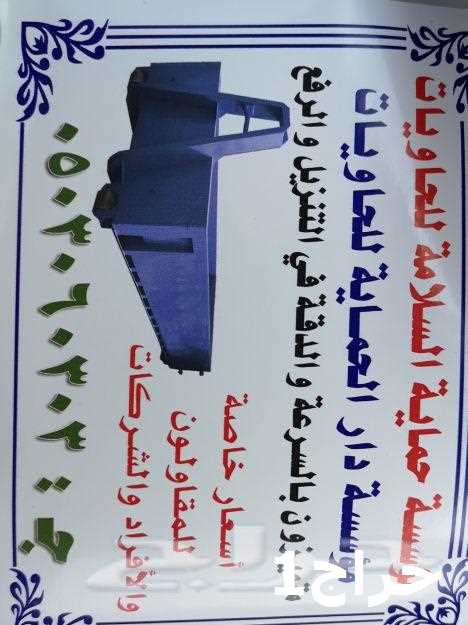 مؤسسة حماية السلامة للحاويات
مؤسسة دار الحماية للحاويات
متميزون بالسرعة والدقة في التنزيل والرفع
أسعار خاصة
للمقاولون
والأفراد والشركات
ج : ٠٥٠٣٠٦٠٣٠٣
حراج1